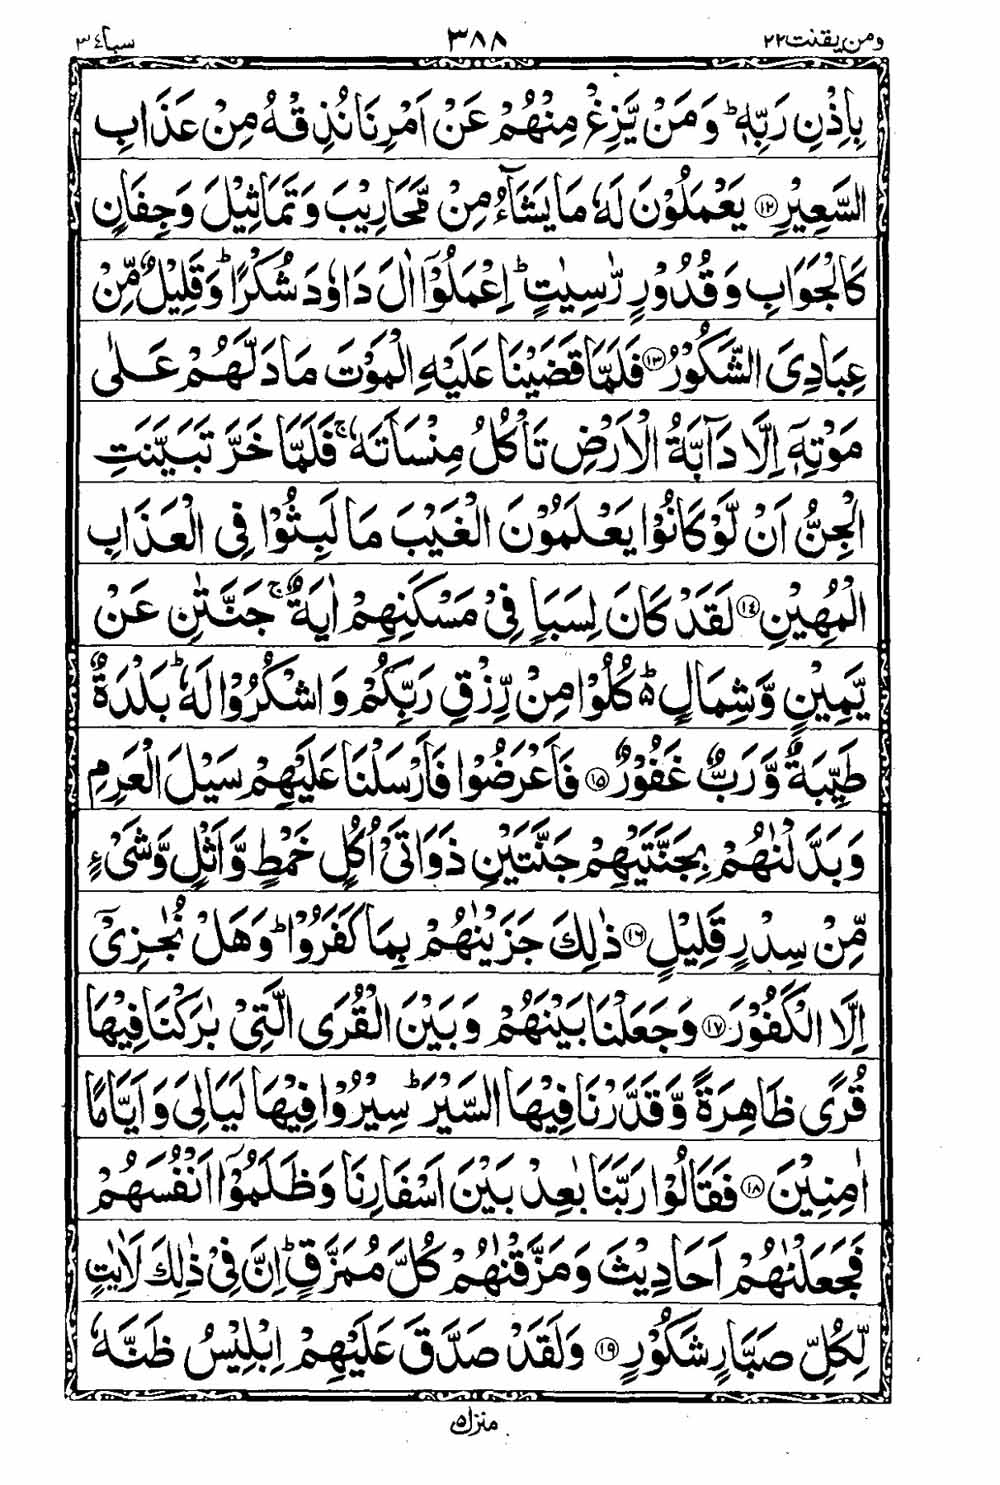 ومن يقنت ٢٢ ٣٨٨ سبا ٣٤
بِاِذْنِ رَبِّهٖ ؕ وَمَنْ يَّزِغْ مِنْهُمْ عَنْ اَمْرِنَا نُذِقْهُ مِنْ عَذَابِ
السَّعِيْرِ ۝١٢ يَعْمَلُوْنَ لَهٗ مَا يَشَآءُ مِنْ مَّحَارِيْبَ وَتَمَاثِيْلَ وَجِفَانٍ
كَالْجَوَابِ وَقُدُوْرٍ رّٰسِيٰتٍ ؕ اِعْمَلُوْۤا اٰلَ دَاوٗدَ شُكْرًا ؕ وَقَلِيْلٌ مِّنْ
عِبَادِيَ الشَّكُوْرُ ۝١٣ فَلَمَّا قَضَيْنَا عَلَيْهِ الْمَوْتَ مَا دَلَّهُمْ عَلٰى
مَوْتِهٖۤ اِلَّا دَآبَّةُ الْاَرْضِ تَاْكُلُ مِنْسَاَتَهٗ ۚ فَلَمَّا خَرَّ تَبَيَّنَتِ
الْجِنُّ اَنْ لَّوْ كَانُوْا يَعْلَمُوْنَ الْغَيْبَ مَا لَبِثُوْا فِي الْعَذَابِ
الْمُهِيْنِ ۝١٤ لَقَدْ كَانَ لِسَبَاٍ فِيْ مَسْكَنِهِمْ اٰيَةٌ ۚ جَنَّتٰنِ عَنْ
يَّمِيْنٍ وَّشِمَالٍ ؕ۬ كُلُوْا مِنْ رِّزْقِ رَبِّكُمْ وَاشْكُرُوْا لَهٗ ؕ بَلْدَةٌ
طَيِّبَةٌ وَّرَبٌّ غَفُوْرٌ ۝١٥ فَاَعْرَضُوْا فَاَرْسَلْنَا عَلَيْهِمْ سَيْلَ الْعَرِمِ
وَبَدَّلْنٰهُمْ بِجَنَّتَيْهِمْ جَنَّتَيْنِ ذَوَاتَيْ اُكُلٍ خَمْطٍ وَّاَثْلٍ وَّشَيْءٍ
مِّنْ سِدْرٍ قَلِيْلٍ ۝١٦ ذٰلِكَ جَزَيْنٰهُمْ بِمَا كَفَرُوْا ؕ وَهَلْ نُجٰزِيْۤ
اِلَّا الْكَفُوْرَ ۝١٧ وَجَعَلْنَا بَيْنَهُمْ وَبَيْنَ الْقُرَى الَّتِيْ بٰرَكْنَا فِيْهَا
قُرًى ظَاهِرَةً وَّقَدَّرْنَا فِيْهَا السَّيْرَ ؕ سِيْرُوْا فِيْهَا لَيَالِيَ وَاَيَّامًا
اٰمِنِيْنَ ۝١٨ فَقَالُوْا رَبَّنَا بٰعِدْ بَيْنَ اَسْفَارِنَا وَظَلَمُوْۤا اَنْفُسَهُمْ
فَجَعَلْنٰهُمْ اَحَادِيْثَ وَمَزَّقْنٰهُمْ كُلَّ مُمَزَّقٍ ؕ اِنَّ فِيْ ذٰلِكَ لَاٰيٰتٍ
لِّكُلِّ صَبَّارٍ شَكُوْرٍ ۝١٩ وَلَقَدْ صَدَّقَ عَلَيْهِمْ اِبْلِيْسُ ظَنَّهٗ
منزل ٥